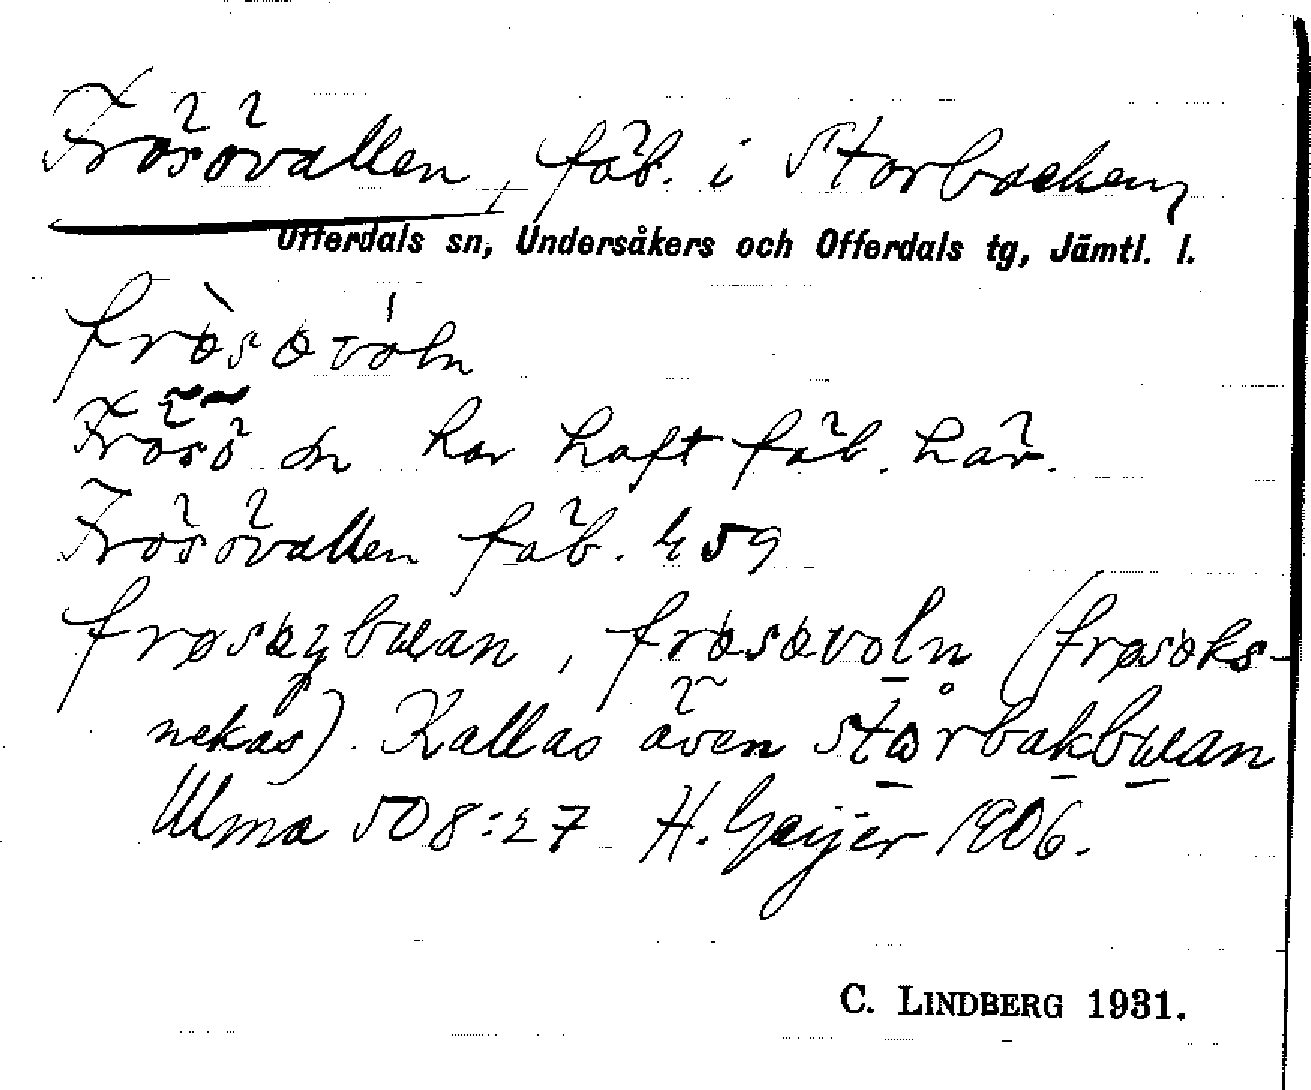 Frösövallen, fäb. i Storbacken,
Offerdals sn, Undersåkers och Offerdals tg, Jämtl. l.
frø̀søvóln
Frösö sn har haft fäb. här.
Frösövallen fäb. E 59
frøsøybuan, frøsøvoln (frøsøks-
nekas). Kallas även stårbakbuan
Ulma 508:27 H. Geijer 1906.
C. LINDBERG 1931.